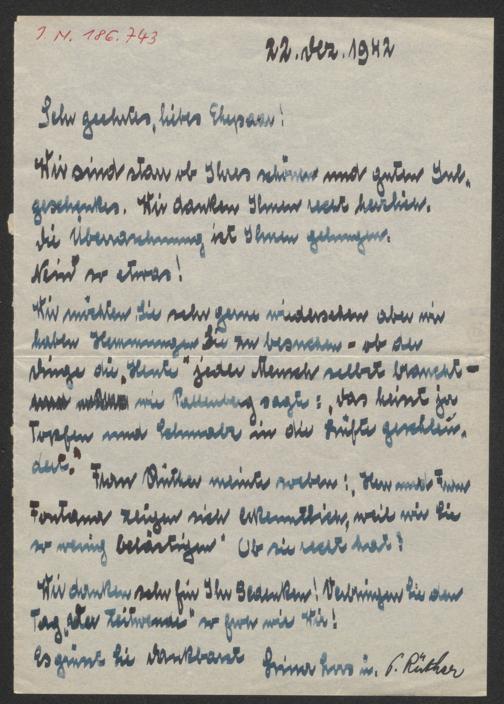 J. N. 186.743
22. Dez. 1942
Sehr geehrtes, liebes Ehepaar!
Wir sind starr ob Ihres schönen und guten Jul-
geschenkes. Wir danken Ihnen recht herzlich.
Die Überraschnung ist Ihnen gelungen.
Nein so etwas!
Wir möchten Sie sehr gerne wiedersehen aber wir
haben Hemmungen Sie zu besuchen - ob der
Dinge die „Heute" jeder Mensch selbst braucht -
wie Pallenberg sagt: „das heist ja
Topfen und Schmalz in die Lüfte geschleu-
dert." Frau Rüther meinte soeben: „Herr und Frau
Fontana zeigen sich erkenntlich, weil wir Sie
so wenig belästigen" Ob sie recht hat?
Wir danken sehr für Ihr Gedenken! Verbringen Sie den
Tag „der Zeitwende" so froh wie Wir!
Es grüsst Sie dankbarst u. P. Rüther